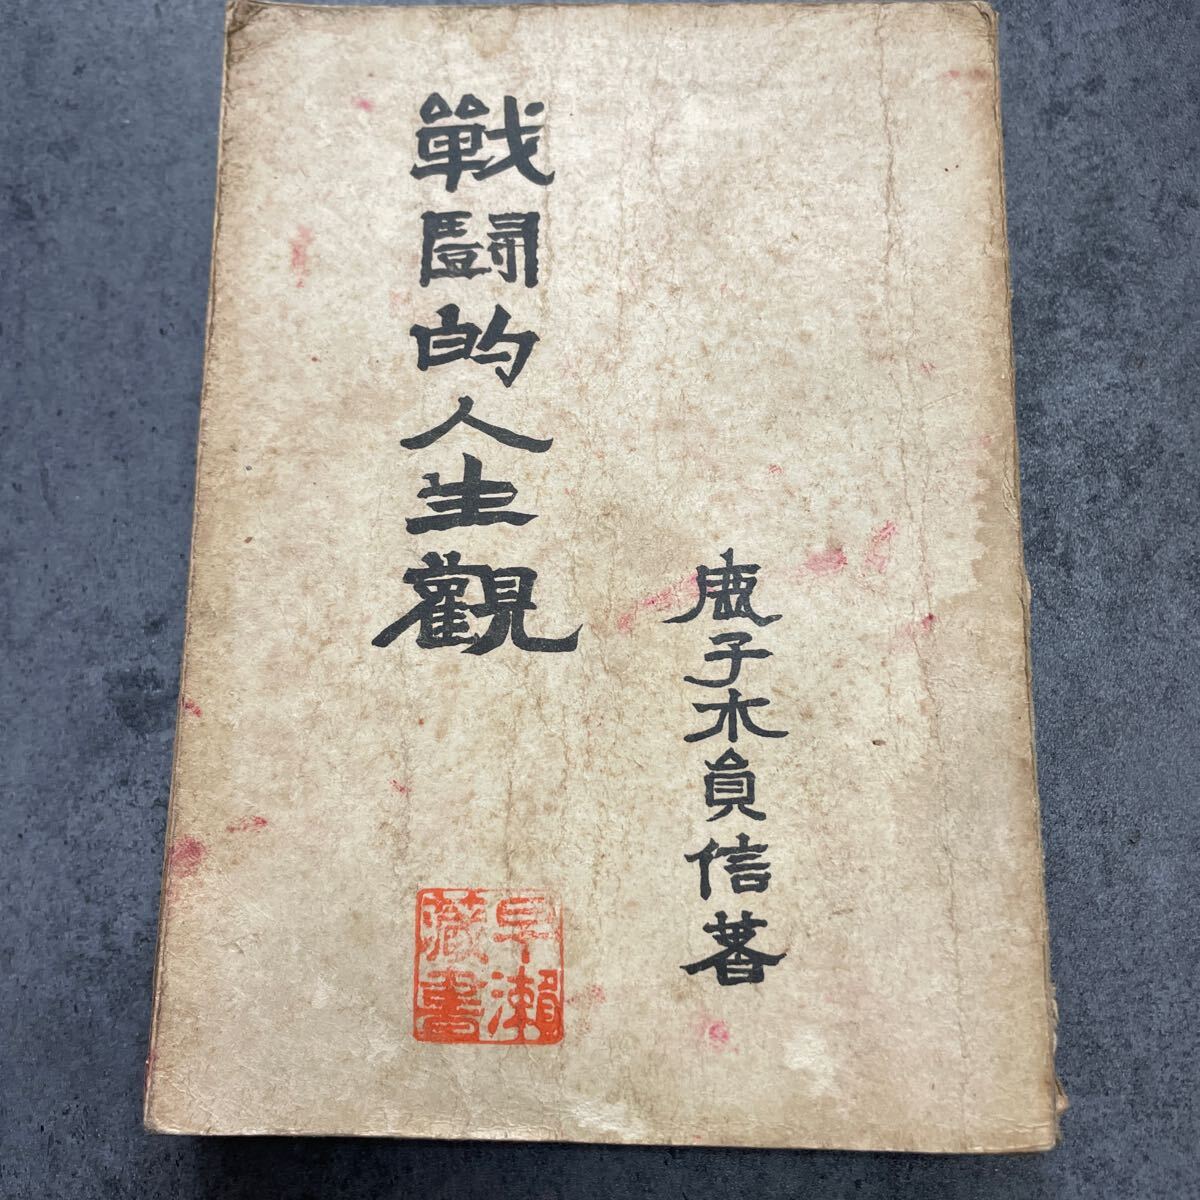 戰鬪的人生觀
鹿子木員信著
早瀨
藏書